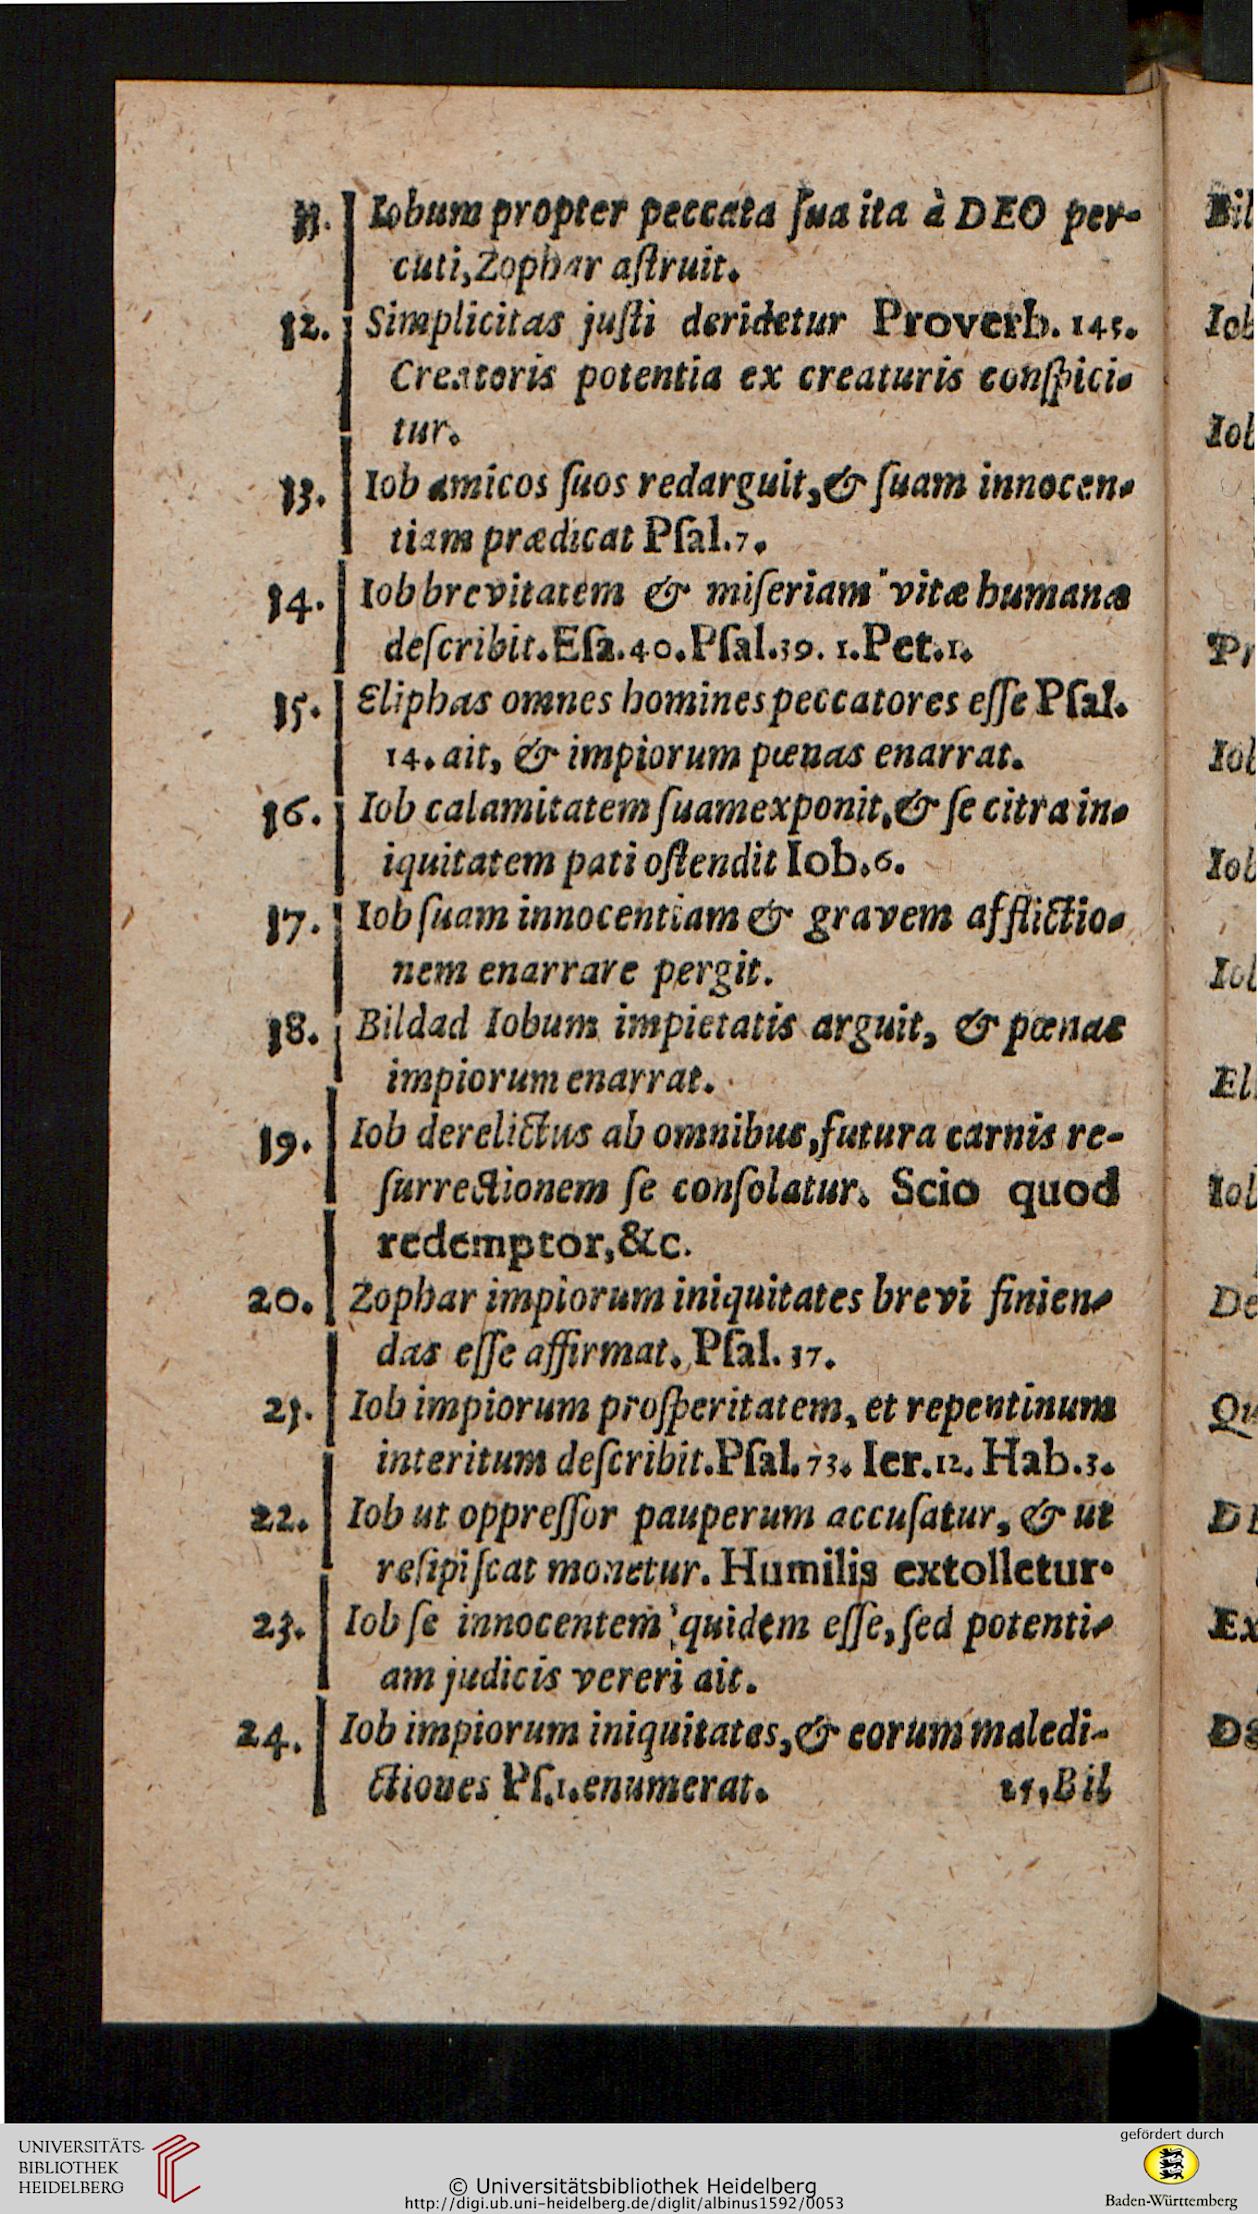 11. Iobum propter peccata ſua ita à DEO per-
cuti, Zophar aſtruit.
12. Simplicitas juſti deridetur Proverb. 145.
Creatoris potentia ex creaturis conſpici-
tur.
13. Iob amicos ſuos redarguit, & ſuam innocen-
tiam prædicat Pſal. 7.
14. Iob brevitatem & miſeriam vitæ humanæ
deſcribit. Eſa. 40. Pſal. 39. 1. Pet. 1.
15. Eliphas omnes homines peccatores eſſe Pſal.
14. ait, & impiorum pœnas enarrat.
16. Iob calamitatem ſuam exponit, & ſe citra in-
iquitatem pati oſtendit Iob. 6.
17. Iob ſuam innocentiam & gravem afflictio-
nem enarrare pergit.
18. Bildad Iobum impietatis arguit, & pœnas
impiorum enarrat.
19. Iob derelictus ab omnibus, futura carnis re-
ſurrectionem ſe conſolatur. Scio quod
redemptor, &c.
20. Zophar impiorum iniquitates brevi finien-
das eſſe affirmat. Pſal. 37.
21. Iob impiorum proſperitatem, et repentinum
interitum deſcribit. Pſal. 73. Ier. 12. Hab. 3.
22. Iob ut oppreſſor pauperum accuſatur, & ut
reſipiſcat monetur. Humilis extolletur.
23. Iob ſe innocentem quidem eſſe, ſed potenti-
am judicis vereri ait.
24. Iob impiorum iniquitates, & eorum maledi-
ctiones Pſ. 1. enumerat.
25, Bil
Bil
Iob
Iob
Pr
Iob
Iob
Iob
El
Iob
De
Qu
Ex
UNIVERSITÄTS-
BIBLIOTHEK
HEIDELBERG
© Universitätsbibliothek Heidelberg
http://digi.ub.uni-heidelberg.de/diglit/albinus1592/0053
gefördert durch
Baden-Württemberg